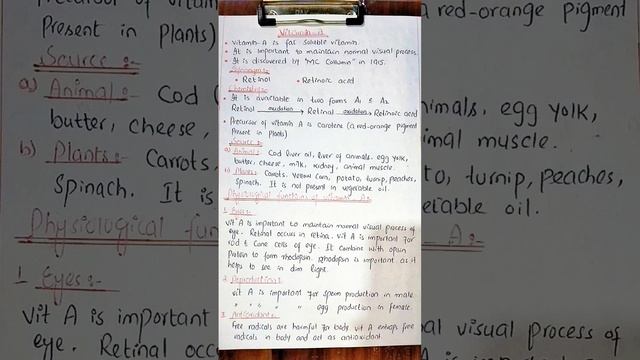 Vitamin-A
• Vitamin-A is fat soluble vitamin.
• It is important to maintain normal visual process.
• It is discovered by "MC Collum" in 1915.
Synonyms:-
• Retinol • Retinoic acid
Chemistry:-
• It is available in two forms A1 & A2
Retinol oxidation→ Retinal oxidation→ Retinoic acid
• Precursor of vitamin A is carotene (a red-orange pigment
Present in plants)
Source:-
a) Animal:- Cod liver oil, liver of animals, egg yolk,
butter, cheese, milk, kidney, animal muscle.
b) Plants:- Carrots, Yellow corn, potato, turnip, peaches,
Spinach. It is not present in vegetable oil.
Physiological functions of vitamin A:-
1. Eyes:-
Vit A is important to maintain normal visual process of
eye. Retinal occurs in retina. Vit A is important for
rod & cone cells of eye. It combine with opsin
protein to form rhodopsin. Rhodopsin is important as it
helps to see in dim light.
2. Reproduction:-
Vit A is important for sperm production in male.
" " " " egg production in female.
3. Antioxidant:-
Free radicals are harmful for body. Vit A entraps free
radicals in body and act as antioxidant.
Present in plants)
Source:-
a) Animal:- Cod
butter, cheese,
b) Plants:- Carrots,
Spinach. It is
Physiological fun
1. Eyes:-
Vit A is important
eye. Retinal occ
a red-orange pigment
nimals, egg yolk,
imal muscle.
to, turnip, peaches,
etable oil.
A:-
al visual process of